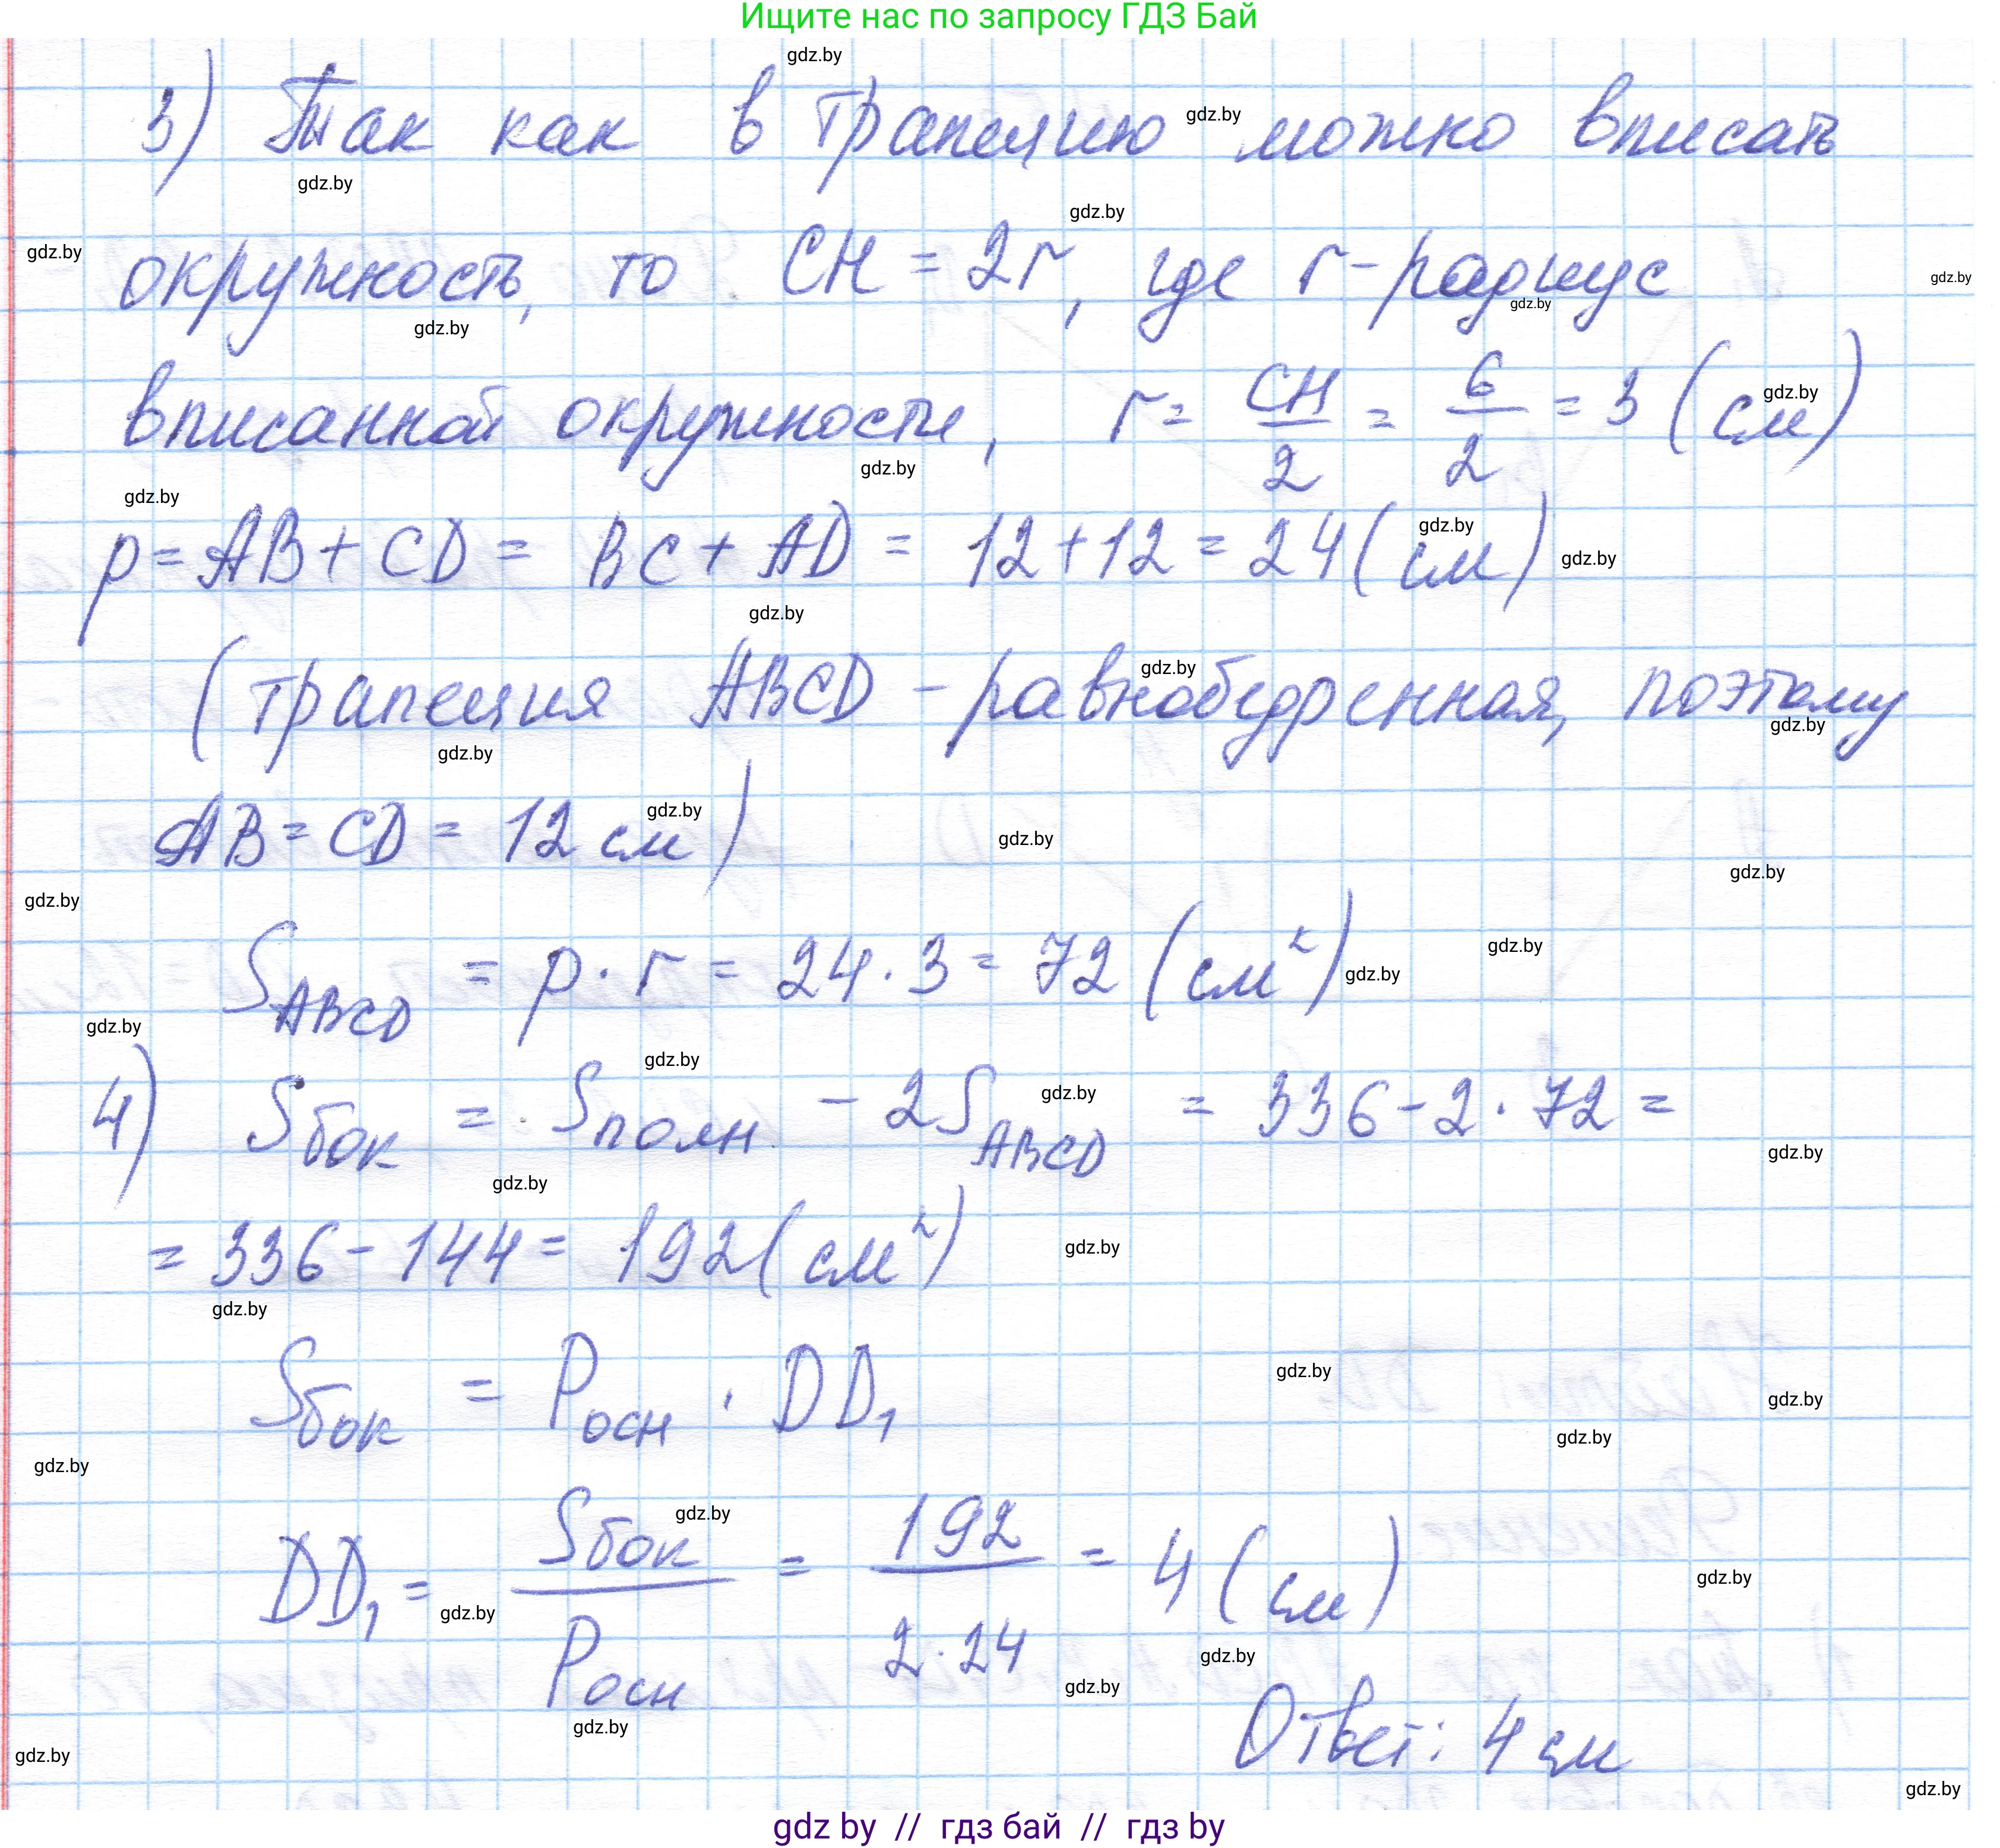 Ищите нас по запросу ГДЗ Бай
gdz.by
3) Так как в трапецию можно вписать
gdz.by
gdz.by
gdz.by
окружность, то CH = 2r, где r - радиус
gdz.by
gdz.by
gdz.by
gdz.by
вписанной окружности, r = CH/2 = 6/2 = 3 (см)
gdz.by
gdz.by
gdz.by
p = AB + CD = BC + AD = 12 + 12 = 24 (см)
gdz.by
gdz.by
gdz.by
(трапеция ABCD - равнобедренная, поэтому
gdz.by
gdz.by
gdz.by
AB = CD = 12 см)
gdz.by
gdz.by
gdz.by
gdz.by
S ABCD = p · r = 24 · 3 = 72 (см²)
gdz.by
gdz.by
gdz.by
4) Sбок = Sполн - 2S ABCD = 336 - 2 · 72 =
gdz.by
gdz.by
gdz.by
gdz.by
= 336 - 144 = 192 (см²)
gdz.by
gdz.by
Sбок = Pосн · DD₁
gdz.by
gdz.by
gdz.by
gdz.by
DD₁ = Sбок/Pосн = 192/2·24 = 4 (см)
gdz.by
gdz.by
gdz.by
gdz.by
gdz.by
gdz.by
Ответ: 4 см
gdz.by
gdz.by
gdz by // гдз бай // гдз by